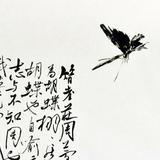 昔者莊周夢
為胡蝶栩々
胡蝶也自喻
志与不知周